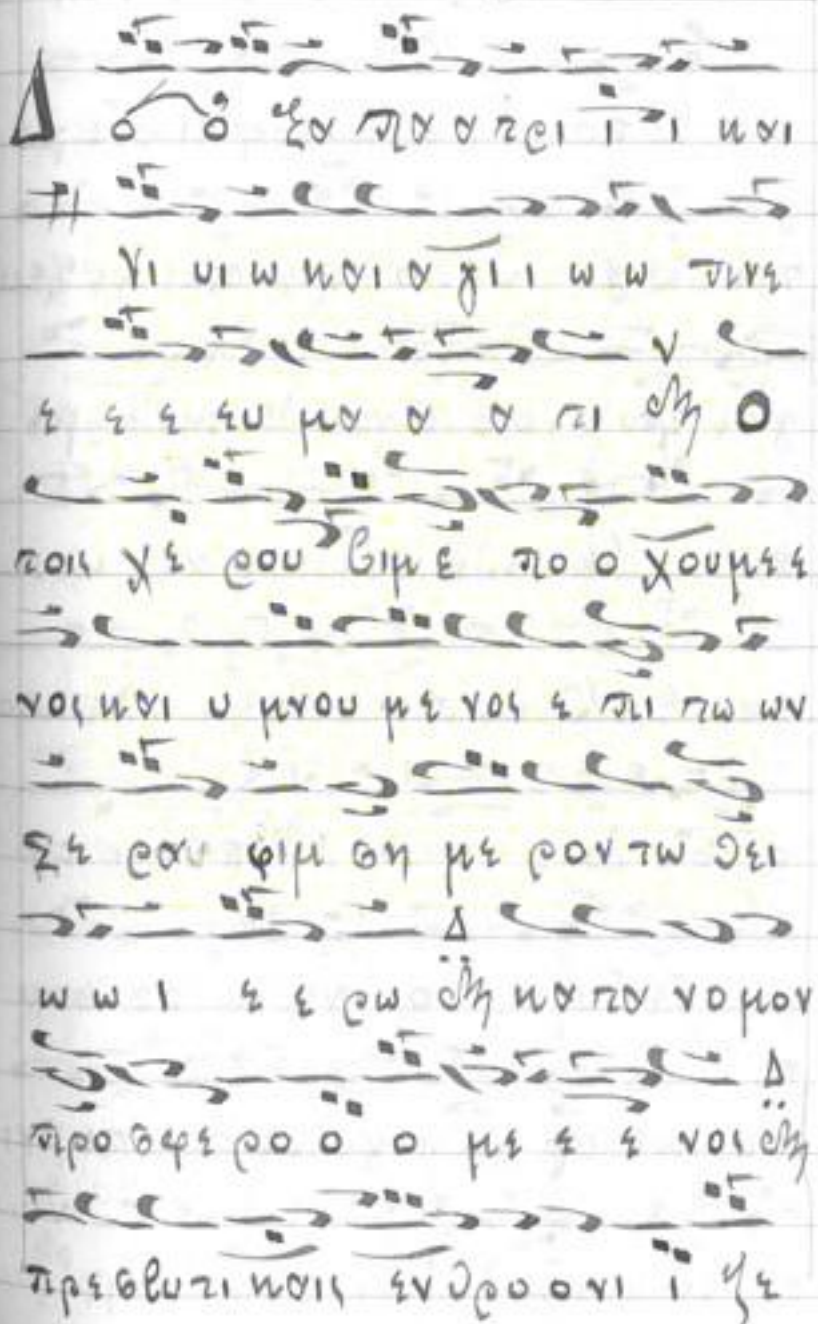 Δ ο ο ξα πα α τρι ι ι ι και
νι υι ω και α γι ι ι ω ω πνε
ε ε ε ευ μα α α α τι Ο
τοις χε ρου βιμ ε πο ο χου με ε
νος και υ μνου με νος ε πι τω ων
Σε ρα φιμ ση με ρον τω θει
ω ω ι ε ε ρω κα τα νο μον
προ σφε ρο ο ο με ε ε νος
πρε σβυ τι καις εν θρο ο νι ι ζε